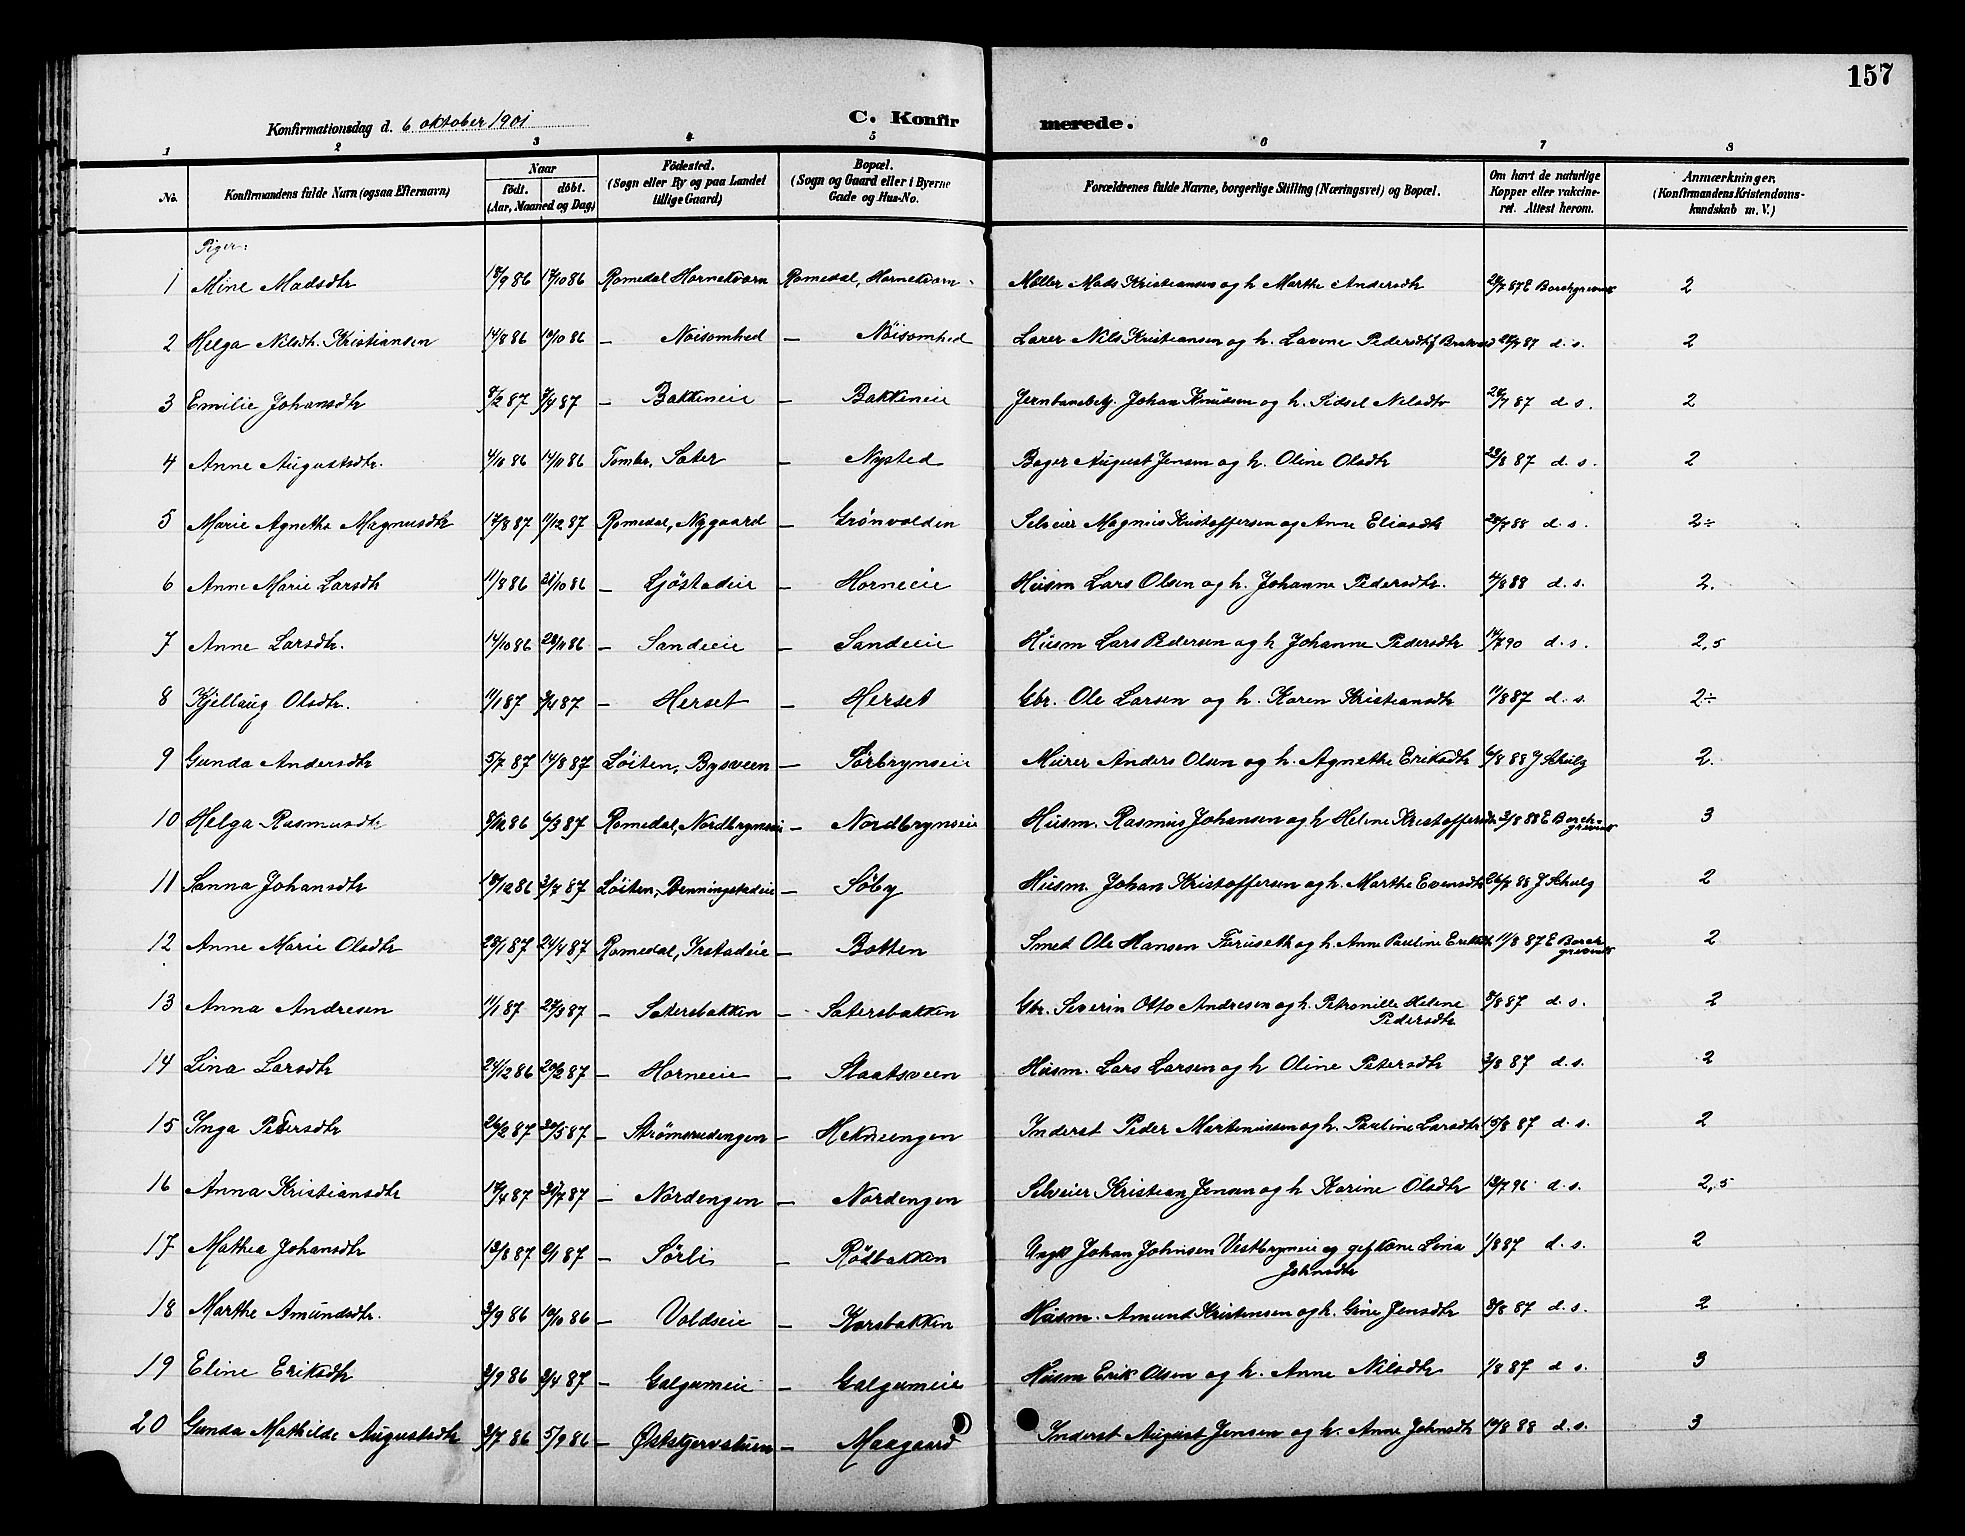 157
Konfirmationsdag d. 6 oktober 1901
C. Konfirmerede.
1 2 3 4 5 6 7 8
No. Konfirmandens fulde Navn (ogsaa Efternavn) Naar født. døbt. (Aar, Maaned og Dag) Födested. (Sogn eller By og paa Landet tillige Gaard) Bopæl. (Sogn og Gaard eller i Byerne Gade og Hus-No. Forældrenes fulde Navne, borgerlige Stilling (Næringsvei) og Bopæl. Om havt de naturlige Kopper eller vakcineret. Attest herom. Anmærkninger, (Konfirmandens Kristendomskundskab m. V.)
Piger:
1 Mine Madsdtr 18/9 86 17/10 86 Romedal Hornekværn Romedal, Hornekværn Møller Mads Kristiansen og h Marthe Andersdtr 28/7 87 E Borchgrevink 2
2 Helga Nilsdtr. Kristiansen 14/8 86 10/10 86 — Nöisomhed — Nöisomhed Lærer Nils Kristiansen og h. Lavine Pedersdtr 28/7 87 d. s. 2
3 Emilie Johansdtr 8/2 87 9/4 87 — Bakkeneie — Bakkeneie Jernbanebetj. Johan Knudsen og h. Sidsel Nilsdtr 28/7 87 d. s. 2
4 Anne Augustsdtr. 4/10 86 14/11 86 Tomter, Sæter — Nysted Bager August Jensen og h. Oline Olsdtr 23/8 87 d. s. 2
5 Marie Agnethe Magnusdtr 17/8 87 11/12 87 Romedal, Nygaard — Grønvolden Selveier Magnus Kristoffersen og Anne Eliasdtr 28/7 88 d. s. 2÷
6 Anne Marie Larsdtr 11/8 86 31/10 86 — Ljöstadeie — Horneeie Husm Lars Olsen og h. Johanne Pedersdtr. 4/8 88 d. s. 2.
7 Anne Larsdtr. 14/10 86 28/11 86 — Sandeeie — Sandeeie Husm Lars Pedersen og h Johanne Pedersdtr 14/7 90 d. s. 2,5
8 Kjellaug Olsdtr. 11/1 87 3/4 87 — Herset — Herset Gbr. Ole Larsen og h. Karen Kristiansdtr 11/8 87 d. s. 2÷
9 Gunda Andersdtr 5/7 87 14/8 87 Löiten, Bysveen — Sörbrynseie Murer Anders Olsen og h. Agnethe Eriksdtr 6/8 88 J Schulz 2.
10 Helga Rasmusdtr 8/12 86 6/3 87 Romedal, Nordbrynseie — Nordbrynseie Husm. Rasmus Johansen og h Helene Kristoffersdtr 3/8 88 E Borchgrevink 3
11 Sanna Johansdtr 18/12 86 3/7 87 Löiten, Benningstadeie — Söby Husm. Johan Kristoffersen og h. Marthe Evensdtr 26/7 88 J Schulz 2
12 Anne Marie Olsdtr 28/1 87 24/4 87 Romedal, Irstadeie — Botten Smed Ole Hansen Furuseth og h. Anne Pauline Eriksdtr 11/8 87 E Borchgrevink 2
13 Anna Andresen 11/1 87 27/3 87 — Sætersbakken — Sætersbakken Gbr. Severin Otto Andresen og h. Petronille Helene Pedersdtr 8/8 87 d. s. 2
14 Lina Larsdtr 24/12 86 20/2 87 — Horneeie — Staatsveen Husm. Lars Larsen og h Oline Petersdtr 3/8 87 d. s. 2
15 Inga Pedersdtr 26/2 87 30/5 87 — Strömsrudengen — Hekneengen Inderst Peder Martinussen og h. Pauline Larsdtr 15/8 87 d. s. 2
16 Anna Kristiansdtr 17/4 87 31/7 87 — Nordengen — Nordengen Selveier Kristian Jensen og h Karine Olsdtr 13/7 96 d. s. 2,5
17 Mathea Johansdtr 13/8 87 6/1 87 — Sörli — Rödbakken Ungk Johan Johnsen Vestbrynseie og gift Kone Lina Johnsdtr 1/8 87 d. s. 2
18 Marthe Amundsdtr. 3/9 86 10/10 86 — Voldseie — Korsbakken Husm. Amund Kristensen og h. Gine Jensdtr 8/8 87 d. s. 2
19 Eline Eriksdtr 2/9 86 3/4 87 — Galgumeie — Galgumeie Husm Erik Olsen og h. Anne Nilsdtr 1/8 87 d s. 3
20 Gunda Mathilde Augustsdtr 3/7 86 5/9 86 — Øststjernstuen — Maagaard Inderst August Jensen og h. Anne Johnsdtr 10/8 88 d. s. 3